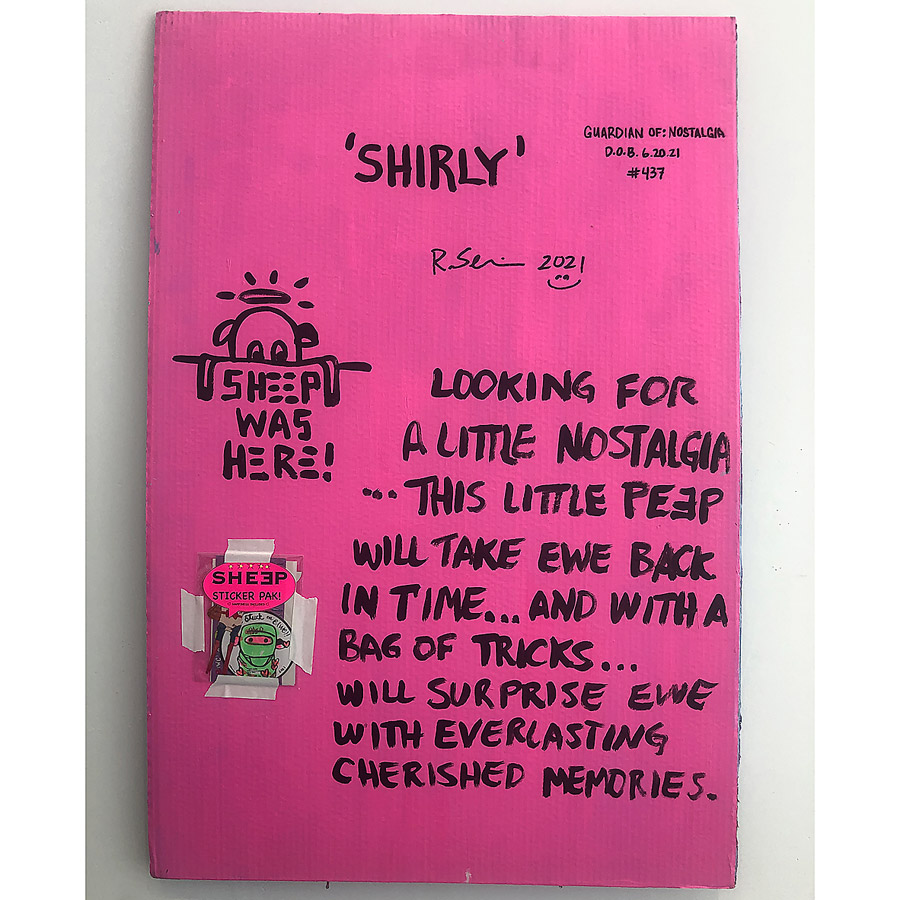 'SHIRLY'
GUARDIAN OF: NOSTALGIA
D.O.B. 6.20.21
#437
2021
SHEEP
WAS
HERE!
LOOKING FOR
A LITTLE NOSTALGIA
...THIS LITTLE PEEP
WILL TAKE EWE BACK
IN TIME...AND WITH A
BAG OF TRICKS...
WILL SURPRISE EWE
WITH EVERLASTING
CHERISHED MEMORIES.
SHEEP
STICKER PAK!